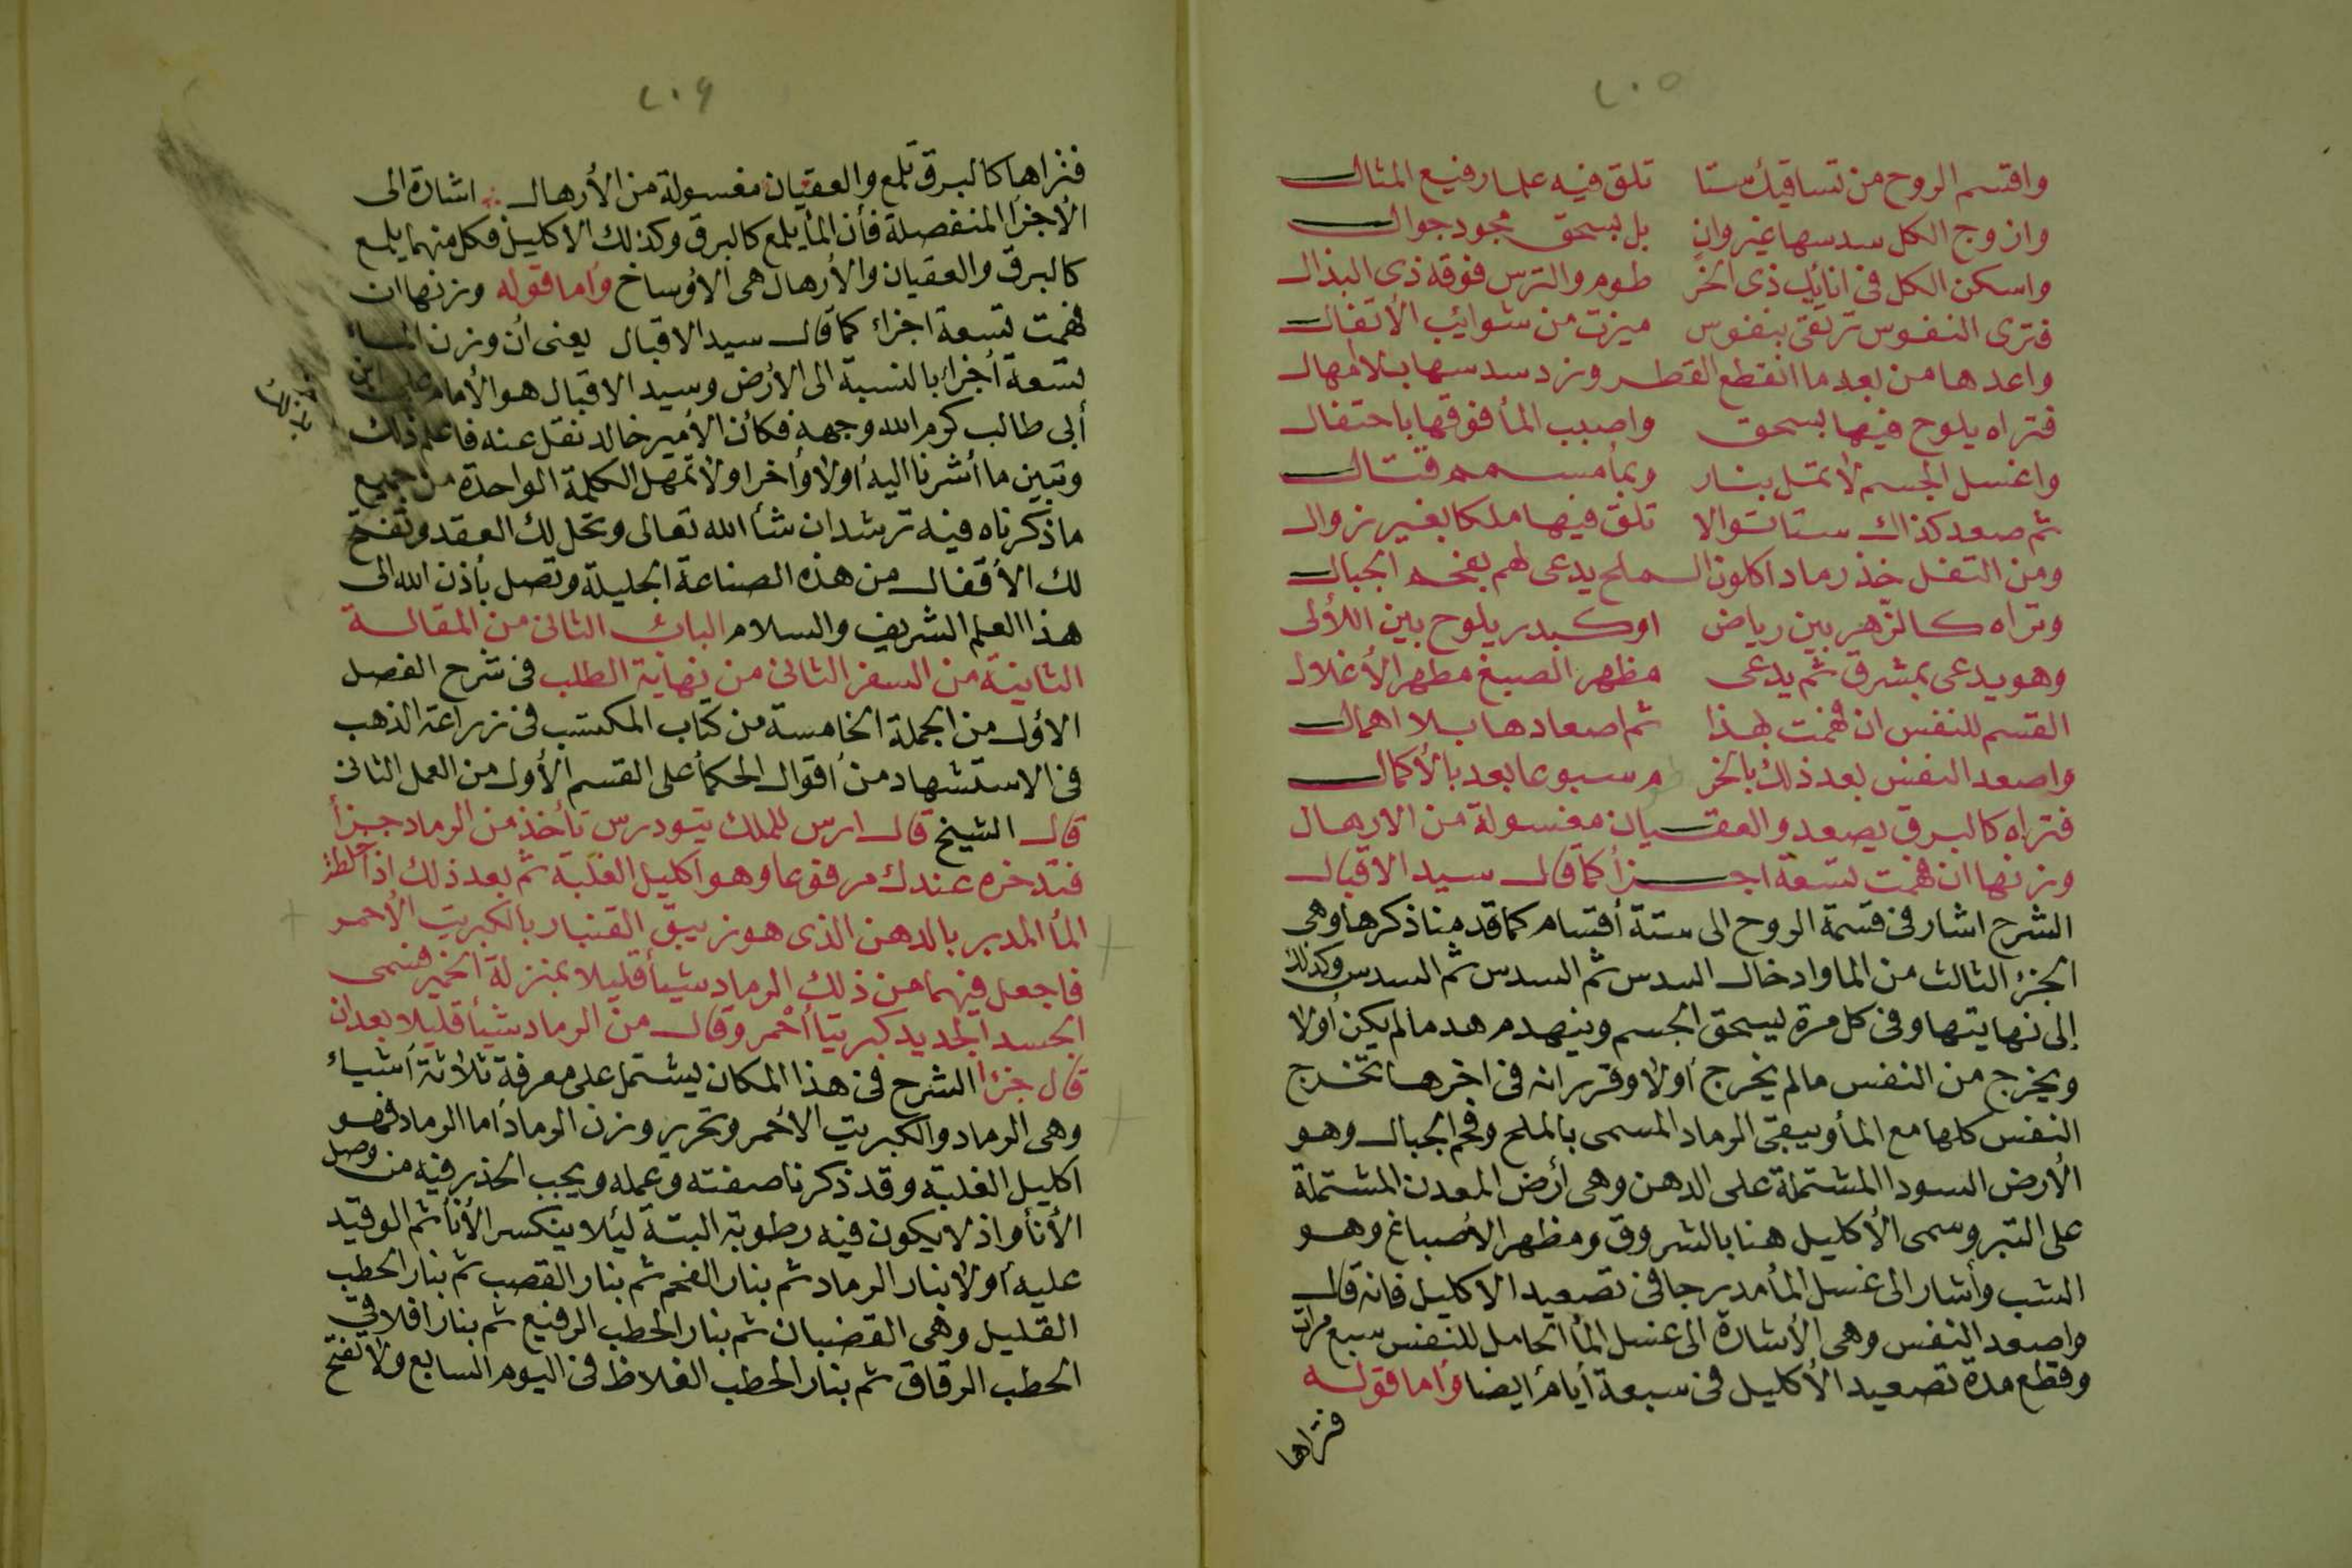 ٢٠٥
واقتسم الروح من تساقيك ستا تلق فيه علما رفيع المثال
وازوج الكل سدسها غير وان بل بسحق مجود جوال
واسكن الكل فى انائك ذى الخر طوم والترس فوقه ذى البذال
فترى النفوس ترتقى بنفوس ميزت من شوائب الأتفال
واعدها من بعد ما انقطع القطر وزد سدسها بلا أمهال
فتراه يلوح فيها بسحق واصبب المأ فوقها باحتفال
واغسل الجسم لا تمل بنار وبمأ
ثم صعد كذاك ستا توالا تلق فيها ملكا بغير زوال
ومن التفل خذ رمادا كلون الملح يدعى لهم بفحم الجبال
وتراه كالزهر بين رياض او كبدر يلوح بين اللأولى
وهو يدعى بمشرق ثم يدعى مظهر الصبغ مطهر الأغلال
القسم للنفس ان فهمت لهذا ثم اصعادها بلا اهمال
واصعد النفس بعد ذلك بالخر طوم سبوعا بعد بالأكمال
فتراه كالبرق يصعد والعقيان مغسولة من الارهال
وزنها ان فهمت تسعة اجزأ كما قال سيد الاقبال
الشرح اشار فى قسمة الروح الى ستة أقسام كما قدمنا ذكرها وهى
الجزء الثالث من الما وادخال السدس ثم السدس ثم السدس وكذلك
إلى نهايتها وفى كل مرة يسحق الجسم وينهدم هدما لم يكن أولا
ويخرج من النفس ما لم يخرج أولا وقرر انه فى اخرها تخرج
النفس كلها مع المأ ويبقى الرماد المسمى بالملح وفحم الجبال وهو
الأرض السودا المشتملة على الدهن وهى أرض المعدن المشتملة
على التبر وسمى الأكليل هنا بالشروق ومظهر الأصباغ وهو
الشب وأشار الى غسل المأ مدرجا فى تصعيد الاكليل فانه قال
واصعد النفس وهى الأشارة الى غسل المأ الحامل للنفس سبع مرات
وقطع مدة تصعيد الأكليل فى سبعة أيام أيضا وأما قوله
فتراها
٢٠٦
فتراها كالبرق تلمع والعقيان مغسولة من الأرهال اشارة الى
الأجزأ المنفصلة فأن المأ يلمع كالبرق وكذلك الاكليل فكل منهما يلمع
كالبرق والعقيان والأرهال هى الأوساخ وأما قوله وزنها ان
فهمت تسعة اجزاء كما قال سيد الاقبال يعنى أن وزن المأ
تسعة أجزأ بالنسبة الى الأرض وسيد الاقبال هو الأمام على ابن
أبى طالب كرم الله وجهه فكأن الأمير خالد نقل عنه فاعلم ذلك
وتبين ما أشرنا اليه أولا وأخرا ولا تمهل الكلمة الواحدة من جميع
ما ذكرناه فيه ترشد ان شأ الله تعالى وتحل لك العقد وتفتح
لك الأقفال من هذه الصناعة الجليلة وتصل بأذن الله الى
هذا العلم الشريف والسلام الباب الثانى من المقالة
الثانية من السفر الثانى من نهاية الطلب فى شرح الفصل
الأول من الجملة الخامسة من كتاب المكتسب فى زراعة الذهب
فى الاستشهاد من أقوال الحكمأ على القسم الأول من العمل الثانى
قال الشيخ قال ارس للملك يتودرس تأخذ من الرماد جزأ
فتدخره عندك مرفوعا وهو اكليل الغلبة ثم بعد ذلك اذا لطف
المأ المدبر بالدهن الذى هو زيبق القنبار بالكبريت الأحمر
فاجعل فيهما من ذلك الرماد شيأ قليلا بمنزلة الخمير فسمى
الجسد الجديد كبريتا أحمر وقال من الرماد شيأ قليلا بعد ان
قال جزأ الشرح فى هذا المكان يشتمل على معرفة ثلاثة أشياء
وهى الرماد والكبريت الأحمر وتحرير وزن الرماد أما الرماد فهو
اكليل الغلبة وقد ذكرنا صفته وعمله ويجب الحذر فيه من وصل
الأنأ واذ لا يكون فيه رطوبة البتة ليئلا ينكسر الأنأ ثم الوقيد
عليه أولا بنار الرماد ثم بنار الفحم ثم بنار القصب ثم بنار الحطب
القليل وهى القضبان ثم بنار الحطب الرفيع ثم بنار افلاق
الحطب الرقاق ثم بنار الحطب الغلاظ فى اليوم السابع ولا تفتح